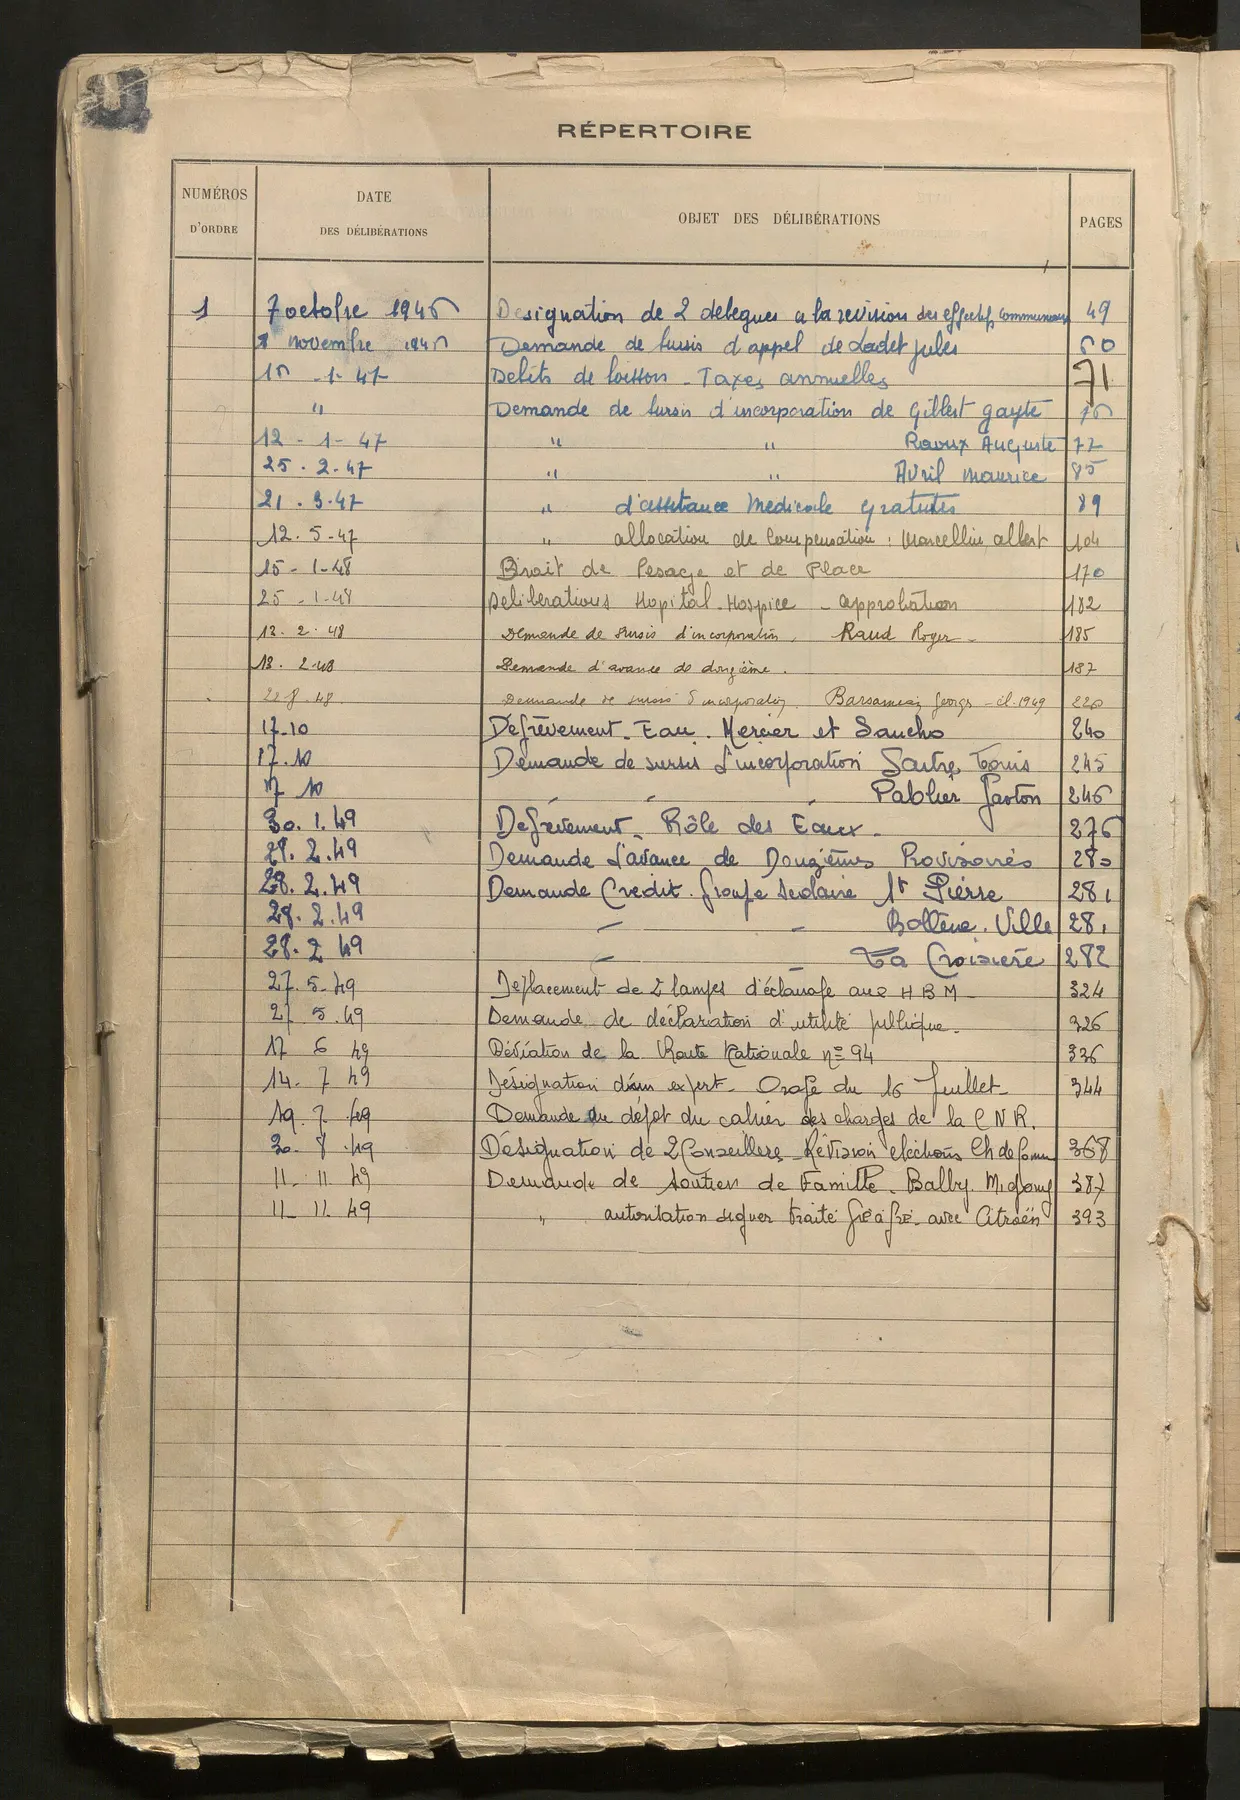 RÉPERTOIRE
NUMÉROS D'ORDRE DATE DES DÉLIBÉRATIONS OBJET DES DÉLIBÉRATIONS PAGES
1 7 octobre 1946 Designation de 2 delegues a la revision des effectifs communaux 49
novembre 1946 Demande de sursis d'appel de Ladet Jules 50
15 - 1-47 Debits de boisson - Taxes annuelles 71
" Demande de sursis d'incorporation de Gilbert Gayte 76
12 - 1 - 47 " " Raoux Auguste 77
25 . 2 - 47 " " Avril Maurice 85
21 . 3-47 " d'assistance Medicale gratuite 89
12. 5 - 47 " allocation de compensation : Marcellin albert 104
15 - 1-48 Droit de Pesage et de Place 170
25 - 1-48 Deliberations Hopital-Hospice - approbation 182
12. 2. 48 Demande de sursis d'incorporation. Raud Roger - 185
18. 2.48 Demande d'avance de douzième. 187
22 8. 48. Demande de sursis d'incorporation. Georges - cl. 1949 220
17-10 Dégrèvement. Eau. Mercier et Sancho 240
17.10 Demande de sursis d'incorporation Sautre Louis 245
17 10 - - - Pablier Gaston 246
30. 1. 49 Degrèvement. Rôle des Eaux - 276
28. 2. 49 Demande d'avance de Douzièmes Provisoires 280
28. 2. 49 Demande Crédit. Groupe scolaire St Pierre 281
28. 2. 49 - - Bollène. Ville 281
28. 2 49 - - La Croisière 282
27. 5. 49 Déplacement de 2 lampes d'éclairage aux H B M - 324
27 5. 49 Demande de déclaration d'utilité publique. 326
17 6 49 Déviation de la Route Nationale n° 94 336
14. 7 49 Désignation d'un expert - Orage du 16 Juillet - 344
19. 7. 49 Demande du dépôt du cahier des charges de la C N R.
30. 8. 49 Désignation de 2 Conseillers Révision élections Ch de Comm 368
11. 11 49 Demande de soutien de Famille. Balby 387
11_ 11. 49 " autorisation signer traité gré à gré avec Citroën 393